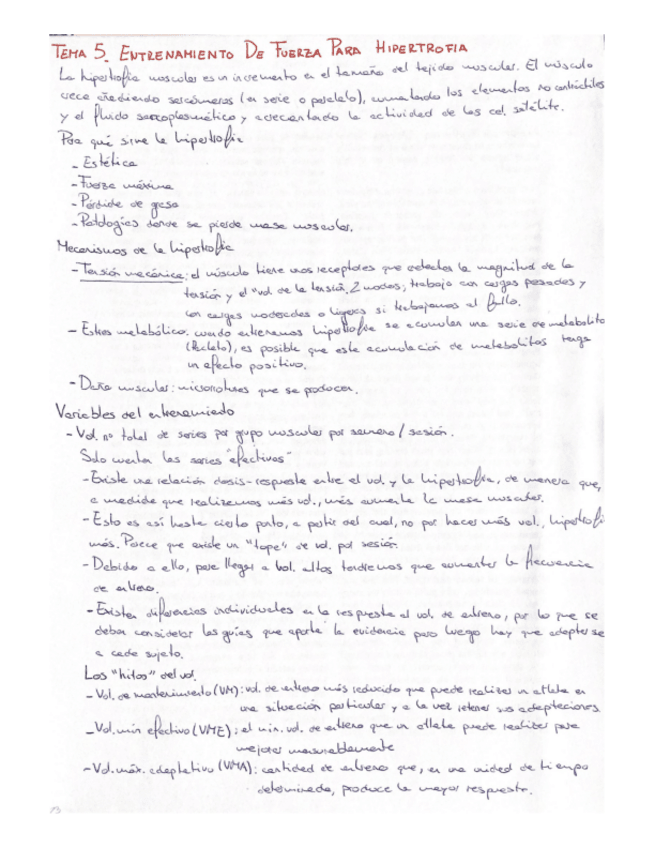 TEMA 5. ENTRENAMIENTO DE FUERZA PARA HIPERTROFIA
La hipertrofia muscular es un incremento en el tamaño del tejido muscular. El músculo
crece añadiendo sarcómeros (en serie o paralelo), aumentando los elementos no contráctiles
y el fluido sarcoplasmático y acrecentando la actividad de las cel. satélite.
Para qué sirve la hipertrofia
- Estética
- Fuerza máxima
- Pérdida de grasa
- Patologías donde se pierde masa muscular.
Mecanismos de la hipertrofia
- Tensión mecánica; el músculo tiene unos receptores que detectan la magnitud de la
tensión y el "vol. de la tensión. 2 modos; trabajo con cargas pesadas y
con cargas moderadas o ligeras si trabajamos al fallo.
- Estrés metabólico. cuando entrenamos hipertrofia se acumulan una serie de metabolito
(lactato), es posible que esta acumulación de metabolitos tenga
un efecto positivo.
- Daño muscular: microroturas que se producen.
Variables del entrenamiento
- Vol. nº total de series por grupo muscular por semana / sesión.
Solo cuentan las series "efectivas"
- Existe una relación dosis-respuesta entre el vol. y la hipertrofia, de manera que,
a medida que realizamos más vol., más aumenta la masa muscular.
- Esto es así hasta cierto punto, a partir del cual, no por hacer más vol., hipertrofi
más. Parece que existe un "tope" de vol. por sesión.
- Debido a ello, para llegar a vol. altos tendremos que aumentar la frecuencia
de entreno.
- Existen diferencias individuales en la respuesta al vol. de entreno, por lo que se
deben considerar las guías que aporta la evidencia pero luego hay que adaptarse
a cada sujeto.
Los "hitos" del vol.
- Vol. de mantenimiento (VM): vol. de entreno más reducido que puede realizar un atleta en
una situación particular y a la vez retener sus adaptaciones
- Vol. mín efectivo (VME): el mín. vol. de entreno que un atleta puede realizar para
mejorar mensurablemente
- Vol. máx. adaptativo (VMA): cantidad de entreno que, en una unidad de tiempo
determinada, produce la mayor respuesta.
13